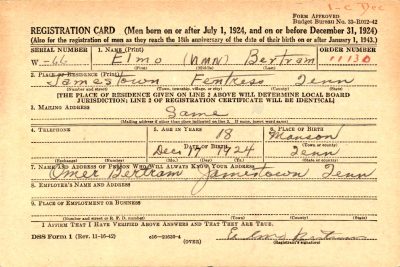 1-C Dec
FORM APPROVED
Budget Bureau No. 33-R012-42
REGISTRATION CARD—(Men born on or after July 1, 1924, and on or before December 31, 1924)
(Also for the registration of men as they reach the 18th anniversary of the date of their birth on or after January 1, 1943.)
SERIAL NUMBER 1. NAME (Print) ORDER NUMBER
W-66 Elmo (NMN) Bertram 11130
(First) (Middle) (Last)
2. PLACE OF RESIDENCE (Print)
Jamestown Fentress Tenn
(Number and street) (Town, township, village, or city) (County) (State)
(THE PLACE OF RESIDENCE GIVEN ON LINE 2 ABOVE WILL DETERMINE LOCAL BOARD
JURISDICTION; LINE 2 OF REGISTRATION CERTIFICATE WILL BE IDENTICAL)
3. MAILING ADDRESS
Same
(Mailing address if other than place indicated on line 2. If same, insert word same)
4. TELEPHONE 5. AGE IN YEARS 6. PLACE OF BIRTH
18 Manson
DATE OF BIRTH (Town or county)
Dec 17 1924 Tenn
(Exchange) (Number) (Mo.) (Day) (Yr.) (State or country)
7. NAME AND ADDRESS OF PERSON WHO WILL ALWAYS KNOW YOUR ADDRESS
Omer Bertram Jamestown Tenn
8. EMPLOYER'S NAME AND ADDRESS
9. PLACE OF EMPLOYMENT OR BUSINESS
(Number and street or R. F. D. number) (Town) (County) (State)
I AFFIRM THAT I HAVE VERIFIED ABOVE ANSWERS AND THAT THEY ARE TRUE.
DSS Form 1 (Rev. 11-16-42) (OVER) Elmo Bertram
(Registrant's signature)